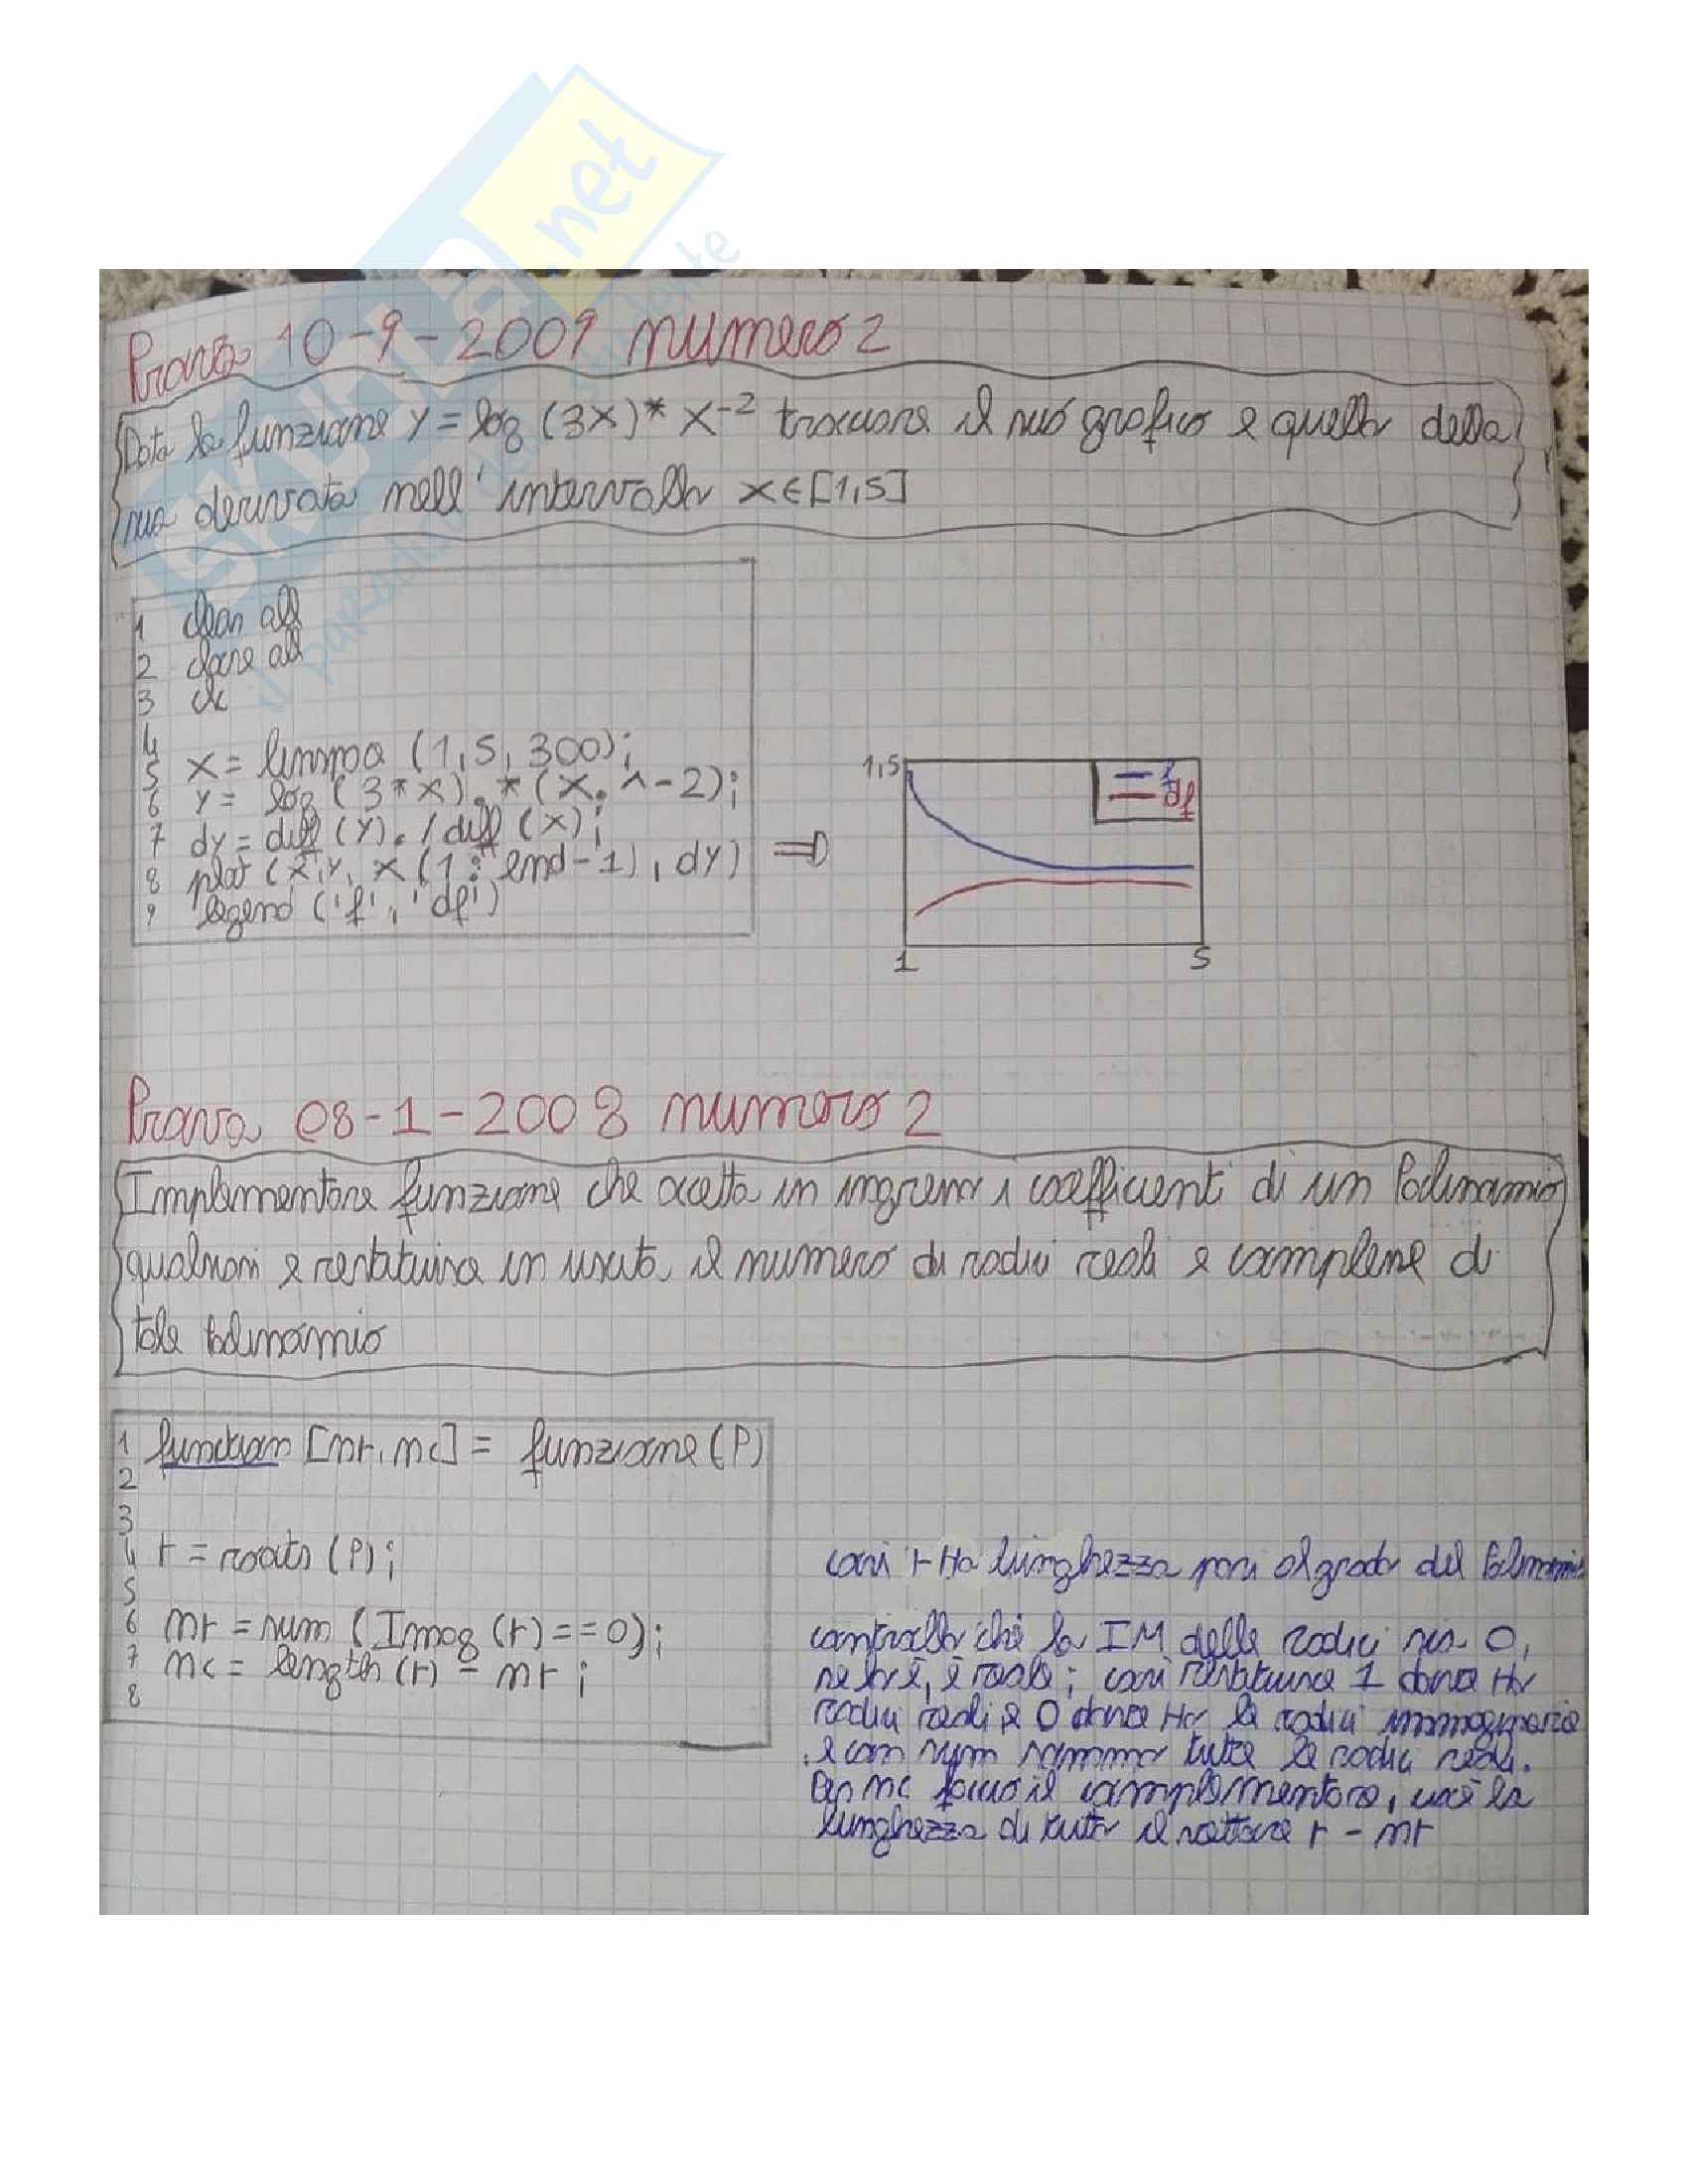 Prova 10-9-2009 numero 2
Data la funzione y = log (3x)* x⁻² tracciare il suo grafico e quello della
sua derivata nell'intervallo x∈[1,5]
1 clear all
2 close all
3 clc
4
5 x = linspa (1,5,300);
6 y = log (3*x).*(x.^-2);
7 dy = diff (y)./diff (x);
8 plot (x,y, x(1:end-1), dy)
9 legend ('f', 'df')
⇒
1,5
f
df
1 5
Prova 08-1-2008 numero 2
Implementare funzione che accetta in ingresso i coefficienti di un Polinomio
qualsiasi e restituisca in uscita il numero di radici reali e complesse di
tale Polinomio
1 function [nr, nc] = funzione (P)
2
3
4 r = roots (P);
5
6 nr = sum (Imag (r) == 0);
7 nc = length (r) - nr;
8
così r ha lunghezza pari al grado del Polinomio
controllo che la IM delle radici sia 0,
se lo è, è reale; così restituisce 1 dove ho
radici reali e 0 dove ho le radici immaginarie
e con sum sommo tutte le radici reali.
Per nc faccio il complementare, cioè la
lunghezza di tutto il vettore r - nr
skuola.net